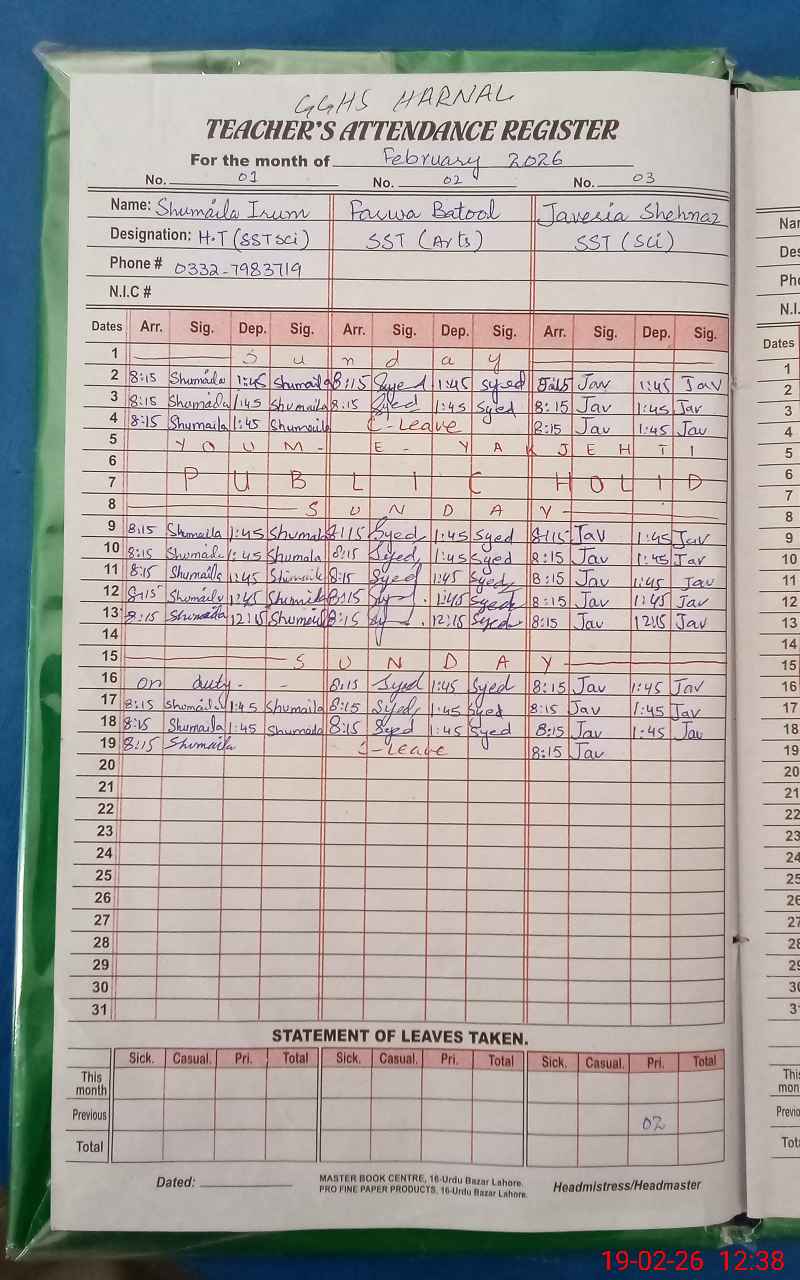 GGHS HARNAL
TEACHER'S ATTENDANCE REGISTER
For the month of February 2026
No. 01 No. 02 No. 03
Name: Shumaila Irum Farwa Batool Javeria Shehnaz
Designation: H.T (SST Sci) SST (Arts) SST (Sci)
Phone # 0332-7983719
N.I.C #
Dates Arr. Sig. Dep. Sig. Arr. Sig. Dep. Sig. Arr. Sig. Dep. Sig.
1 Sunday
2 8:15 Shumaila 1:45 Shumaila 8:15 Syed 1:45 Syed 8:15 Jav 1:45 Jav
3 8:15 Shumaila 1:45 Shumaila 8:15 Syed 1:45 Syed 8:15 Jav 1:45 Jav
4 8:15 Shumaila 1:45 Shumaila C-Leave 8:15 Jav 1:45 Jav
5 YOUM-E-YAKJEHTI
6
7 PUBLIC HOLID
8 SUNDAY
9 8:15 Shumaila 1:45 Shumaila 8:15 Syed 1:45 Syed 8:15 Jav 1:45 Jav
10 8:15 Shumaila 1:45 Shumaila 8:15 Syed 1:45 Syed 8:15 Jav 1:45 Jav
11 8:15 Shumaila 1:45 Shumaila 8:15 Syed 1:45 Syed 8:15 Jav 1:45 Jav
12 8:15 Shumaila 1:45 Shumaila 8:15 Syed 1:45 Syed 8:15 Jav 1:45 Jav
13 8:15 Shumaila 12:15 Shumaila 8:15 Syed 12:15 Syed 8:15 Jav 12:15 Jav
14
15 SUNDAY
16 on duty - - 8:15 Syed 1:45 Syed 8:15 Jav 1:45 Jav
17 8:15 Shumaila 1:45 Shumaila 8:15 Syed 1:45 Syed 8:15 Jav 1:45 Jav
18 8:15 Shumaila 1:45 Shumaila 8:15 Syed 1:45 Syed 8:15 Jav 1:45 Jav
19 8:15 Shumaila C-Leave 8:15 Jav
20
21
22
23
24
25
26
27
28
29
30
31
STATEMENT OF LEAVES TAKEN.
Sick. Casual. Pri. Total Sick. Casual. Pri. Total Sick. Casual. Pri. Total
This month
Previous 02
Total
Dated: MASTER BOOK CENTRE, 16-Urdu Bazar Lahore. Headmistress/Headmaster
PRO FINE PAPER PRODUCTS, 16-Urdu Bazar Lahore.
19-02-26 12:38